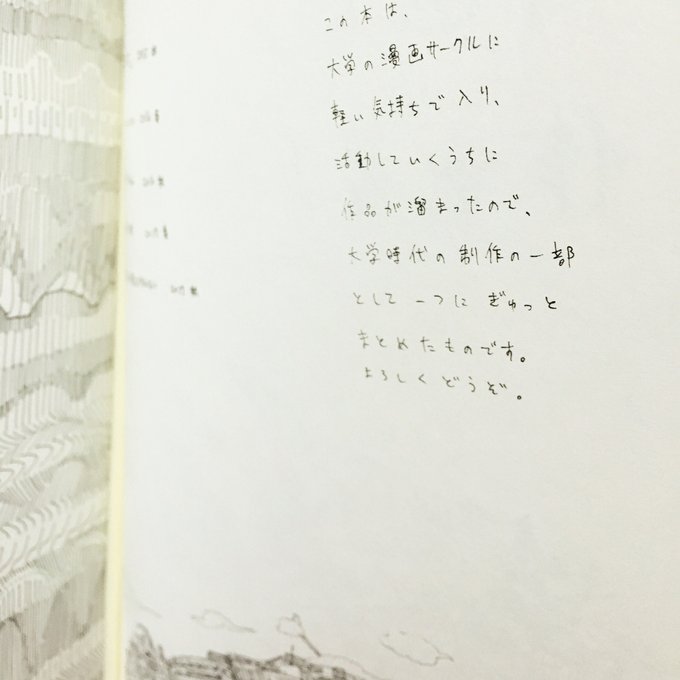 この本は、
大学の漫画サークルに
軽い気持ちで入り、
活動していくうちに
作品が溜まったので、
大学時代の制作の一部
として一つにぎゅっと
まとめたものです。
よろしくどうぞ。